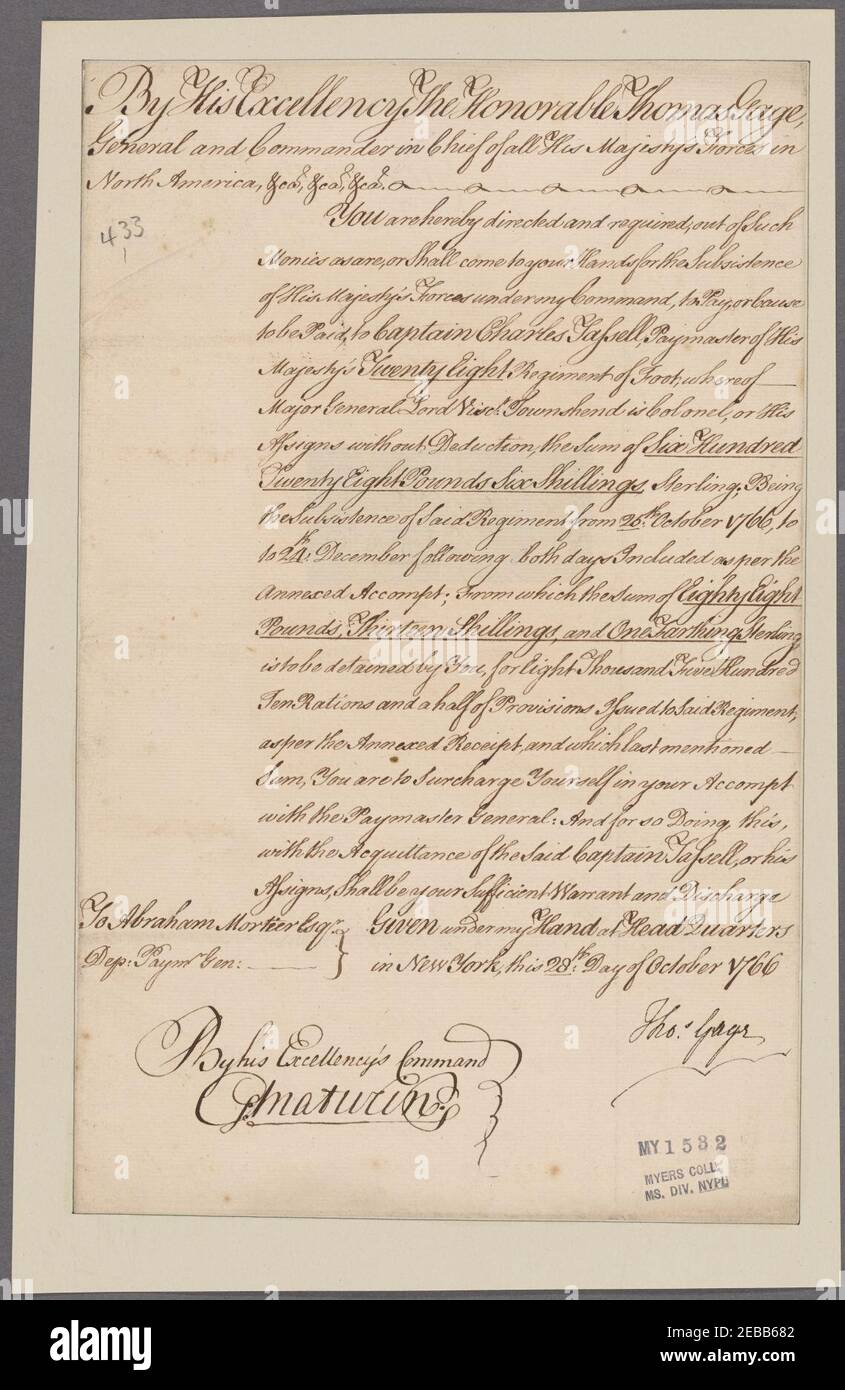 By His Excellency The Honorable Thomas Gage,
General and Commander in Chief of all His Majesty's Forces in
North America, &ca, &ca, &ca.
433
You are hereby directed and required, out of Such
Monies as are, or Shall come to your Hands for the Subsistence
of His Majesty's Forces under my Command, to Pay, or Cause
to be Paid, to Captain Charles Tassell, Paymaster of His
Majesty's Twenty Eight Regiment of Foot, whereof
Major General Lord Visct. Townshend is Colonel, or His
Assigns without Deduction, the Sum of Six Hundred
Twenty Eight Pounds Six Shillings, Sterling; Being
the Subsistence of Said Regiment from 25th. October 1766, to
to 24th. December following both days Included as per the
Annexed Accompt; From which the Sum of Eighty Eight
Pounds, Thirteen Shillings, and One Farthing Sterling,
is to be detained by You, for Eight Thousand Five Hundred
Ten Rations and a half of Provisions Issued to Said Regiment,
as per the Annexed Receipt, and which last mentioned
Sum, You are to Surcharge Yourself in your Accompt
with the Paymaster General: And for so Doing, this,
with the Acquittance of the Said Captain Tassell, or his
Assigns, Shall be your Sufficient Warrant and Discharge
Given under my Hand at Head Quarters
in New York, this 28th. Day of October 1766
To Abraham Mortier Esqr.
Dep: Paymr. Gen:
Thos. Gage
By his Excellency's Command
G. Maturin
MY 1532
MYERS COLL.
MS. DIV. NYPL
alamy
a
alamy
www.alamy.com
Image ID: 2EBB682